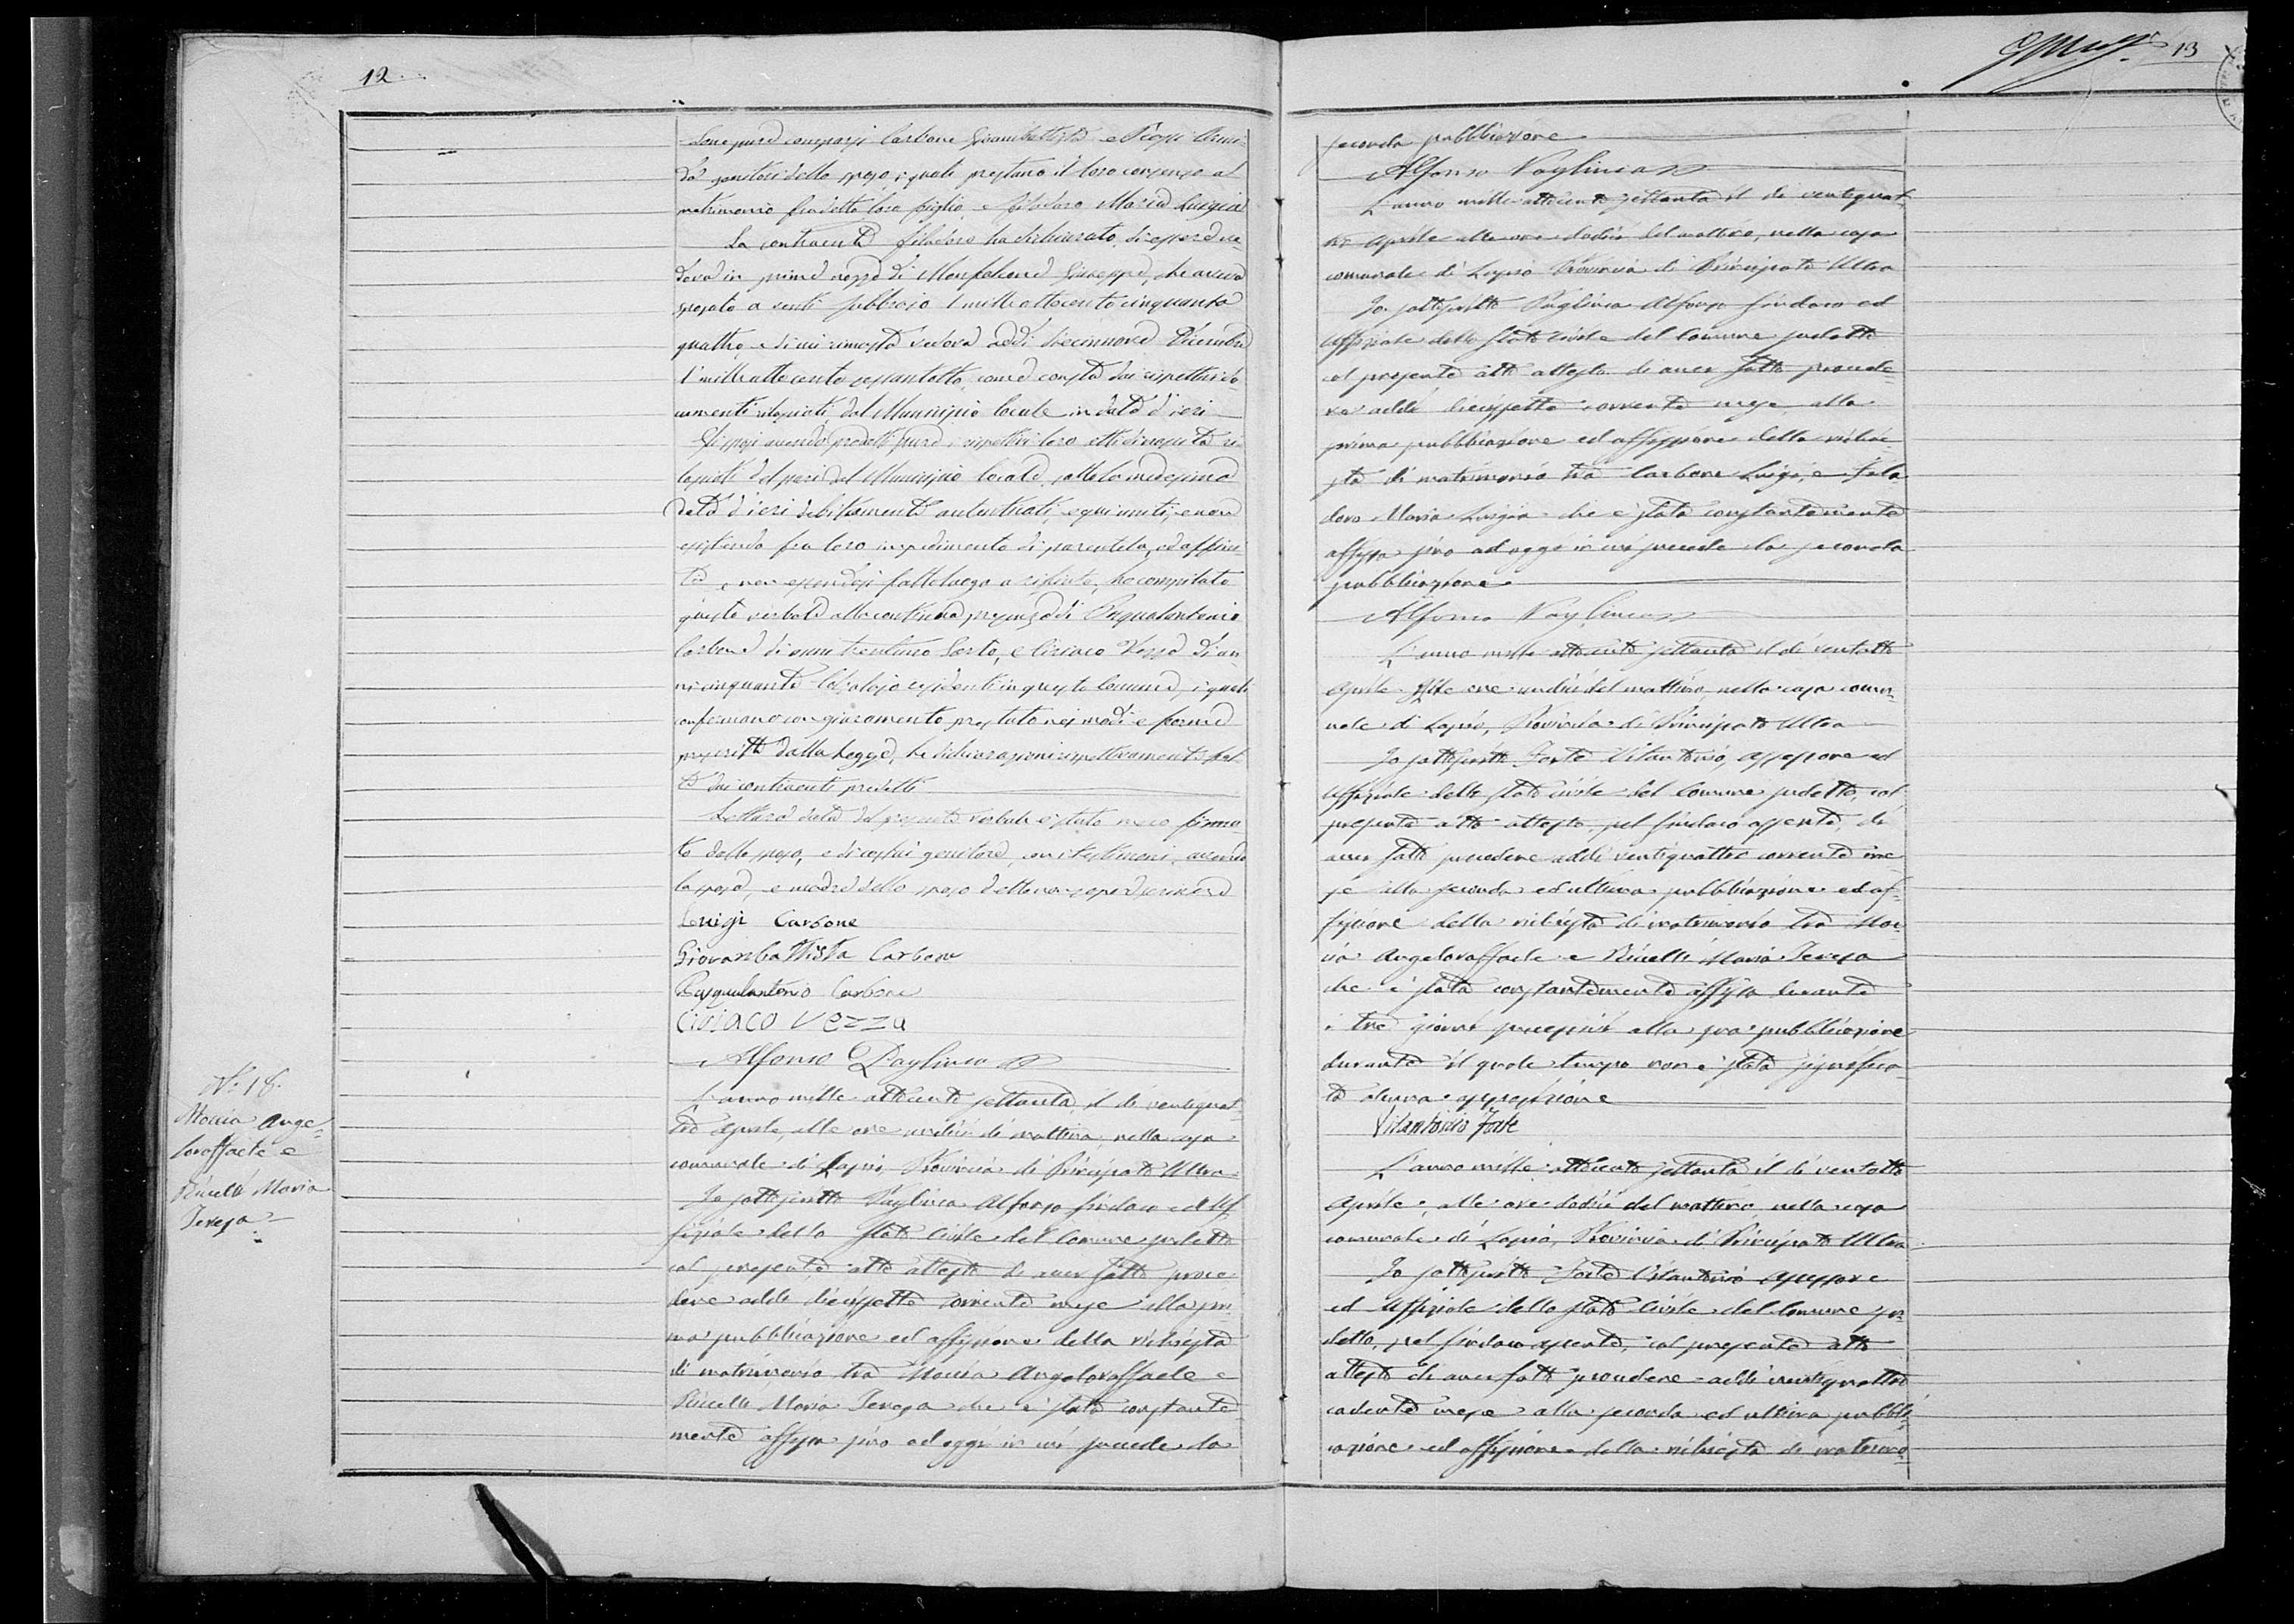 12
Sono pure comparsi Carbone Giambattista e
genitori dello sposo, i quali prestano il loro consenso al
matrimonio fra detto loro figlio, e Filadoro Maria Luigia
La contraente Filadoro ha dichiarato di essere ve-
dova in prime nozze di Giuseppe, che aveva
sposato a venti Febbrajo 1milleottocento cinquanta
quattro, e di cui rimasta vedova addì diecinnove Dicembre
1milleottocento sessantotto, come consta dai rispettivi do-
cumenti rilasciati dal Municipio locale in data d'ieri
Gli sposi avendo prodotti pure i rispettivi loro atti di nascita ri-
lasciati del pari dal Municipio locale, sotto la medesima
data d'ieri debitamente autenticati, e qui uniti, e non
esistendo fra loro impedimento di parentela, ed affini-
tà, e non essendosi fatto luogo a rifiuto, ho compilato
questo verbale alla continua presenza di Pasqualantonio
Carbone di anni trentuno Sarto, e Ciriaco Vezza di an-
ni cinquanta Calzolajo residenti in questo Comune, i quali
confermano con giuramento prestato nei modi e forme
prescritte dalla Legge, le dichiarazioni rispettivamente fat-
te dai contraenti predetti
Lettura data del presente verbale è stato meco firma-
to dallo sposo, e di costui genitore, con i testimoni, avendo
la sposa, e madre dello sposo detto non sapere scrivere
Luigi Carbone
Giovanbattista Carbone
Pasqualantonio Carbone
Ciriaco Vezza
Alfonso Pagliuca
N.º 18.
Moccia Ange-
loraffaele e
Maria
Teresa
L'anno mille ottocento settanta, il dì ventiquat-
tro Aprile, alle ore undici di mattina, nella casa
comunale di Lapio, Provincia di Principato Ultra
Io sottoscritto Pagliuca Alfonso Sindaco ed Uf-
fiziale dello Stato Civile del Comune sudetto
col presente atto attesto di aver fatto proce-
dere addì diecissette corrente mese alla pri-
ma pubblicazione ed affissione della richiesta
di matrimonio tra Moccia Angeloraffaele e
Maria Teresa che è stata constante
mente affissa sino ad oggi in cui succede la
13
seconda pubblicazione
Alfonso Pagliuca
L'anno mille ottocento settanta il dì ventiquat-
tro Aprile alle ore dodici del mattino, nella casa
comunale di Lapio Provincia di Principato Ultra
Io sottoscritto Pagliuca Alfonso Sindaco ed
Uffiziale dello Stato Civile del Comune sudetto
col presente atto attesto di aver fatto procede-
re addì diecissette corrente mese alla
prima pubblicazione ed affissione della richie-
sta di matrimonio tra Carbone Luigi, e Fila
doro Maria Luigia che è stata constantemente
affissa sino ad oggi in cui succede la seconda
pubblicazione
Alfonso Pagliuca
L'anno mille ottocento settanta il dì ventotto
Aprile alle ore undici del mattino, nella casa comu-
nale di Lapio, Provincia di Principato Ultra
Io sottoscritto Forte Vitantonio, Assessore ed
Uffiziale dello Stato Civile del Comune sudetto, col
presente atto attesto pel Sindaco assente, di
aver fatto procedere addì ventiquattro corrente me
se alla seconda ed ultima pubblicazione ed af-
fissione della richiesta di matrimonio tra Moc-
cia Angeloraffaele e Maria Teresa
che è stata constantemente affissa durante
i tre giorni successivi alla sua pubblicazione
durante il quale tempo non è stata significa-
ta alcuna opposizione
Vitantonio Forte
L'anno mille ottocento settanta il dì ventotto
Aprile, alle ore dodici del mattino nella casa
comunale di Lapio, Provincia di Principato Ultra
Io sottoscritto Forte Vitantonio Assessore
ed Uffiziale dello Stato Civile del Comune su-
detto, pel Sindaco assente, col presente atto
attesto di aver fatto procedere addì ventiquattro
cadente mese alla seconda ed ultima pubbli-
cazione ed affissione della richiesta di matrimo-